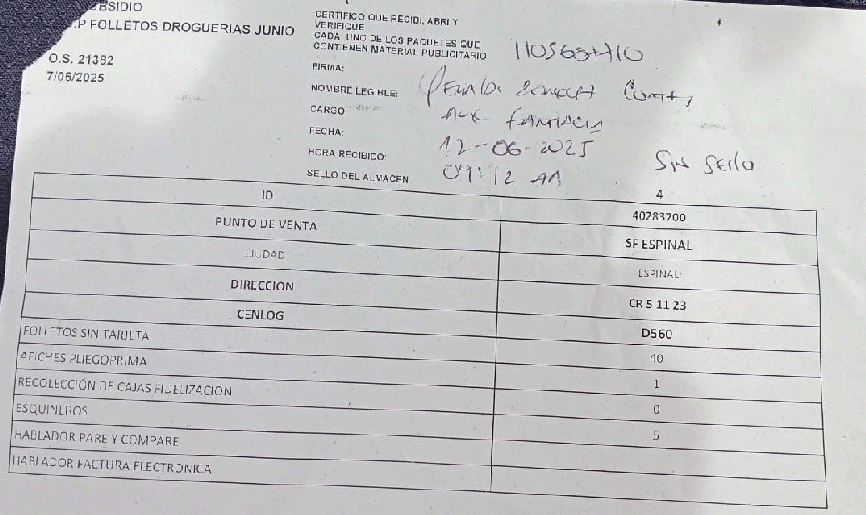 BSIDIO
P FOLLETOS DROGUERIAS JUNIO
O.S. 21382
7/06/2025
CERTIFICO QUE RECIDI, ABRI Y
VERIFIQUE
CADA UNO DE LOS PAQUETES QUE
CONTIENEN MATERIAL PUBLICITARIO
FIRMA:
NOMBRE LEGIBLE:
CARGO
Aux. FARMACIA
FECHA:
12-06-2025
HORA RECIBIDO:
09:12 AM
Sin sello
SELLO DEL ALMACEN
ID 4
40283700
PUNTO DE VENTA SF ESPINAL
CIUDAD ESPINAL
DIRECCION CR 5 11 23
CENLOG D560
FOLLETOS SIN TARJETA 40
AFICHES PLIEGOPRIMA 1
RECOLECCIÓN DE CAJAS FIDELIZACION 0
ESQUINEROS 5
HABLADOR PARE Y COMPARE
HABLADOR FACTURA ELECTRONICA